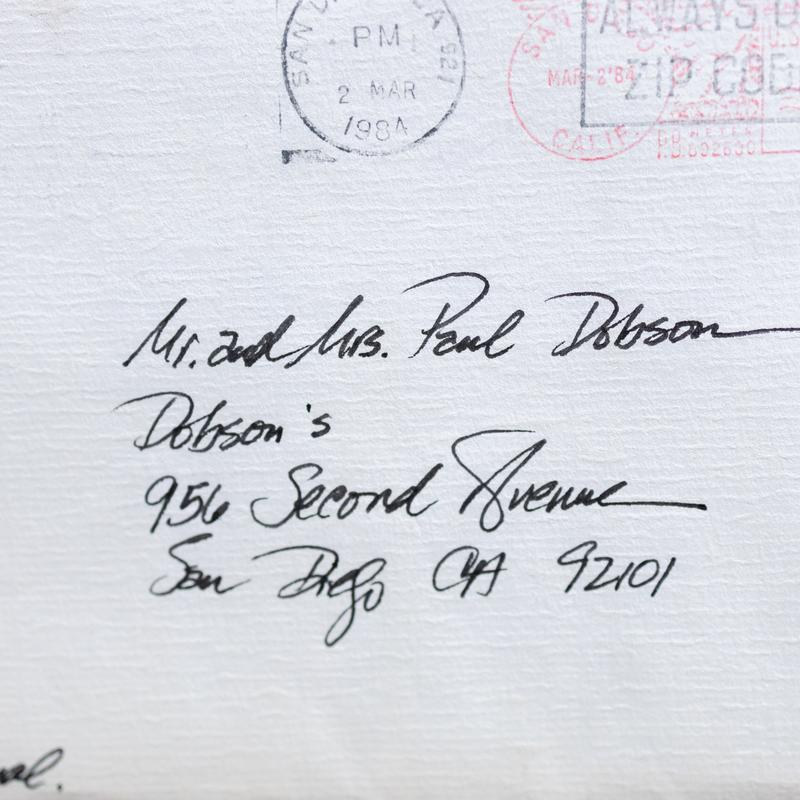 SAN CA 921
PM
2 MAR
1984
SAN
MAR-2'84
CALIF.
ALWAYS U
ZIP COD
U.S.
P.B. METER
Mr. and Mrs. Paul Dobson
Dobson's
956 Second Avenue
San Diego CA 92101